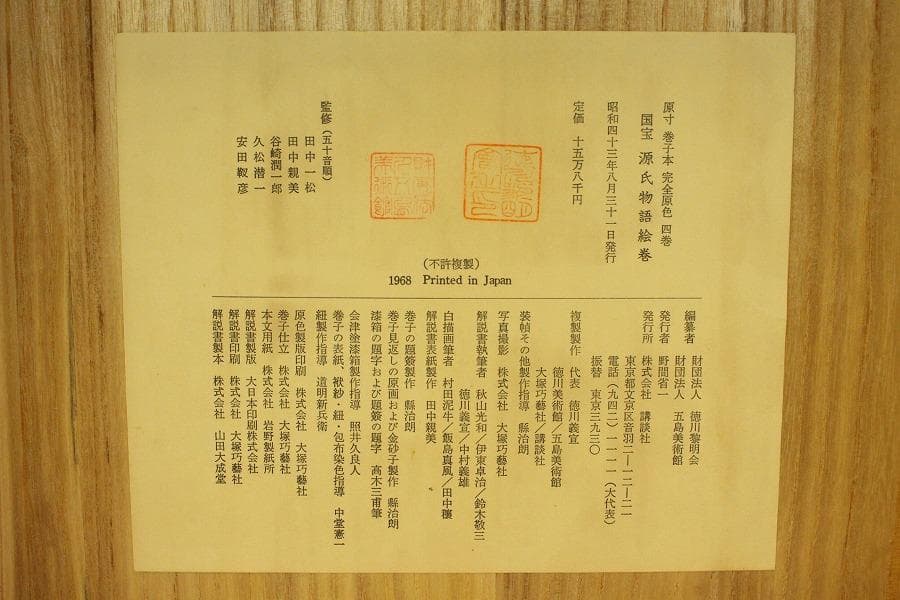 原寸 巻子本 完全原色 四巻
国宝 源氏物語絵巻
昭和四十三年八月三十一日発行
定価 十五万八千円
監修(五十音順)
田中一松
田中親美
谷崎潤一郎
久松潜一
安田靫彦
(不許複製)
1968 Printed in Japan
編纂者 財団法人 徳川黎明会
財団法人 五島美術館
発行者 野間省一
発行所 株式会社 講談社
東京都文京区音羽二―一二―二一
電話(九四二)一一一一(大代表)
振替 東京三九三〇
複製製作 代表 徳川義宣
徳川美術館/五島美術館
大塚巧藝社/講談社
装幀その他製作指導 縣治朗
写真撮影 株式会社 大塚巧藝社
解説書執筆者 秋山光和/伊東卓治/鈴木敬三
徳川義宣/中村義雄
白描画筆者 村田泥牛/飯島真風/田中穰
解説書表紙製作 田中親美
巻子の題簽製作 縣治朗
巻子見返しの原画および金砂子製作 縣治朗
漆箱の題字および題簽の題字 高木三甫筆
会津塗漆箱製作指導 照井久良人
巻子の表紙、袱紗・紐・包布染色指導 中堂憲一
紐製作指導 道明新兵衛
原色製版印刷 株式会社 大塚巧藝社
巻子仕立 株式会社 大塚巧藝社
本文用紙 株式会社 岩野製紙所
解説書製版 大日本印刷株式会社
解説書印刷 株式会社 大塚巧藝社
解説書製本 株式会社 山田大成堂